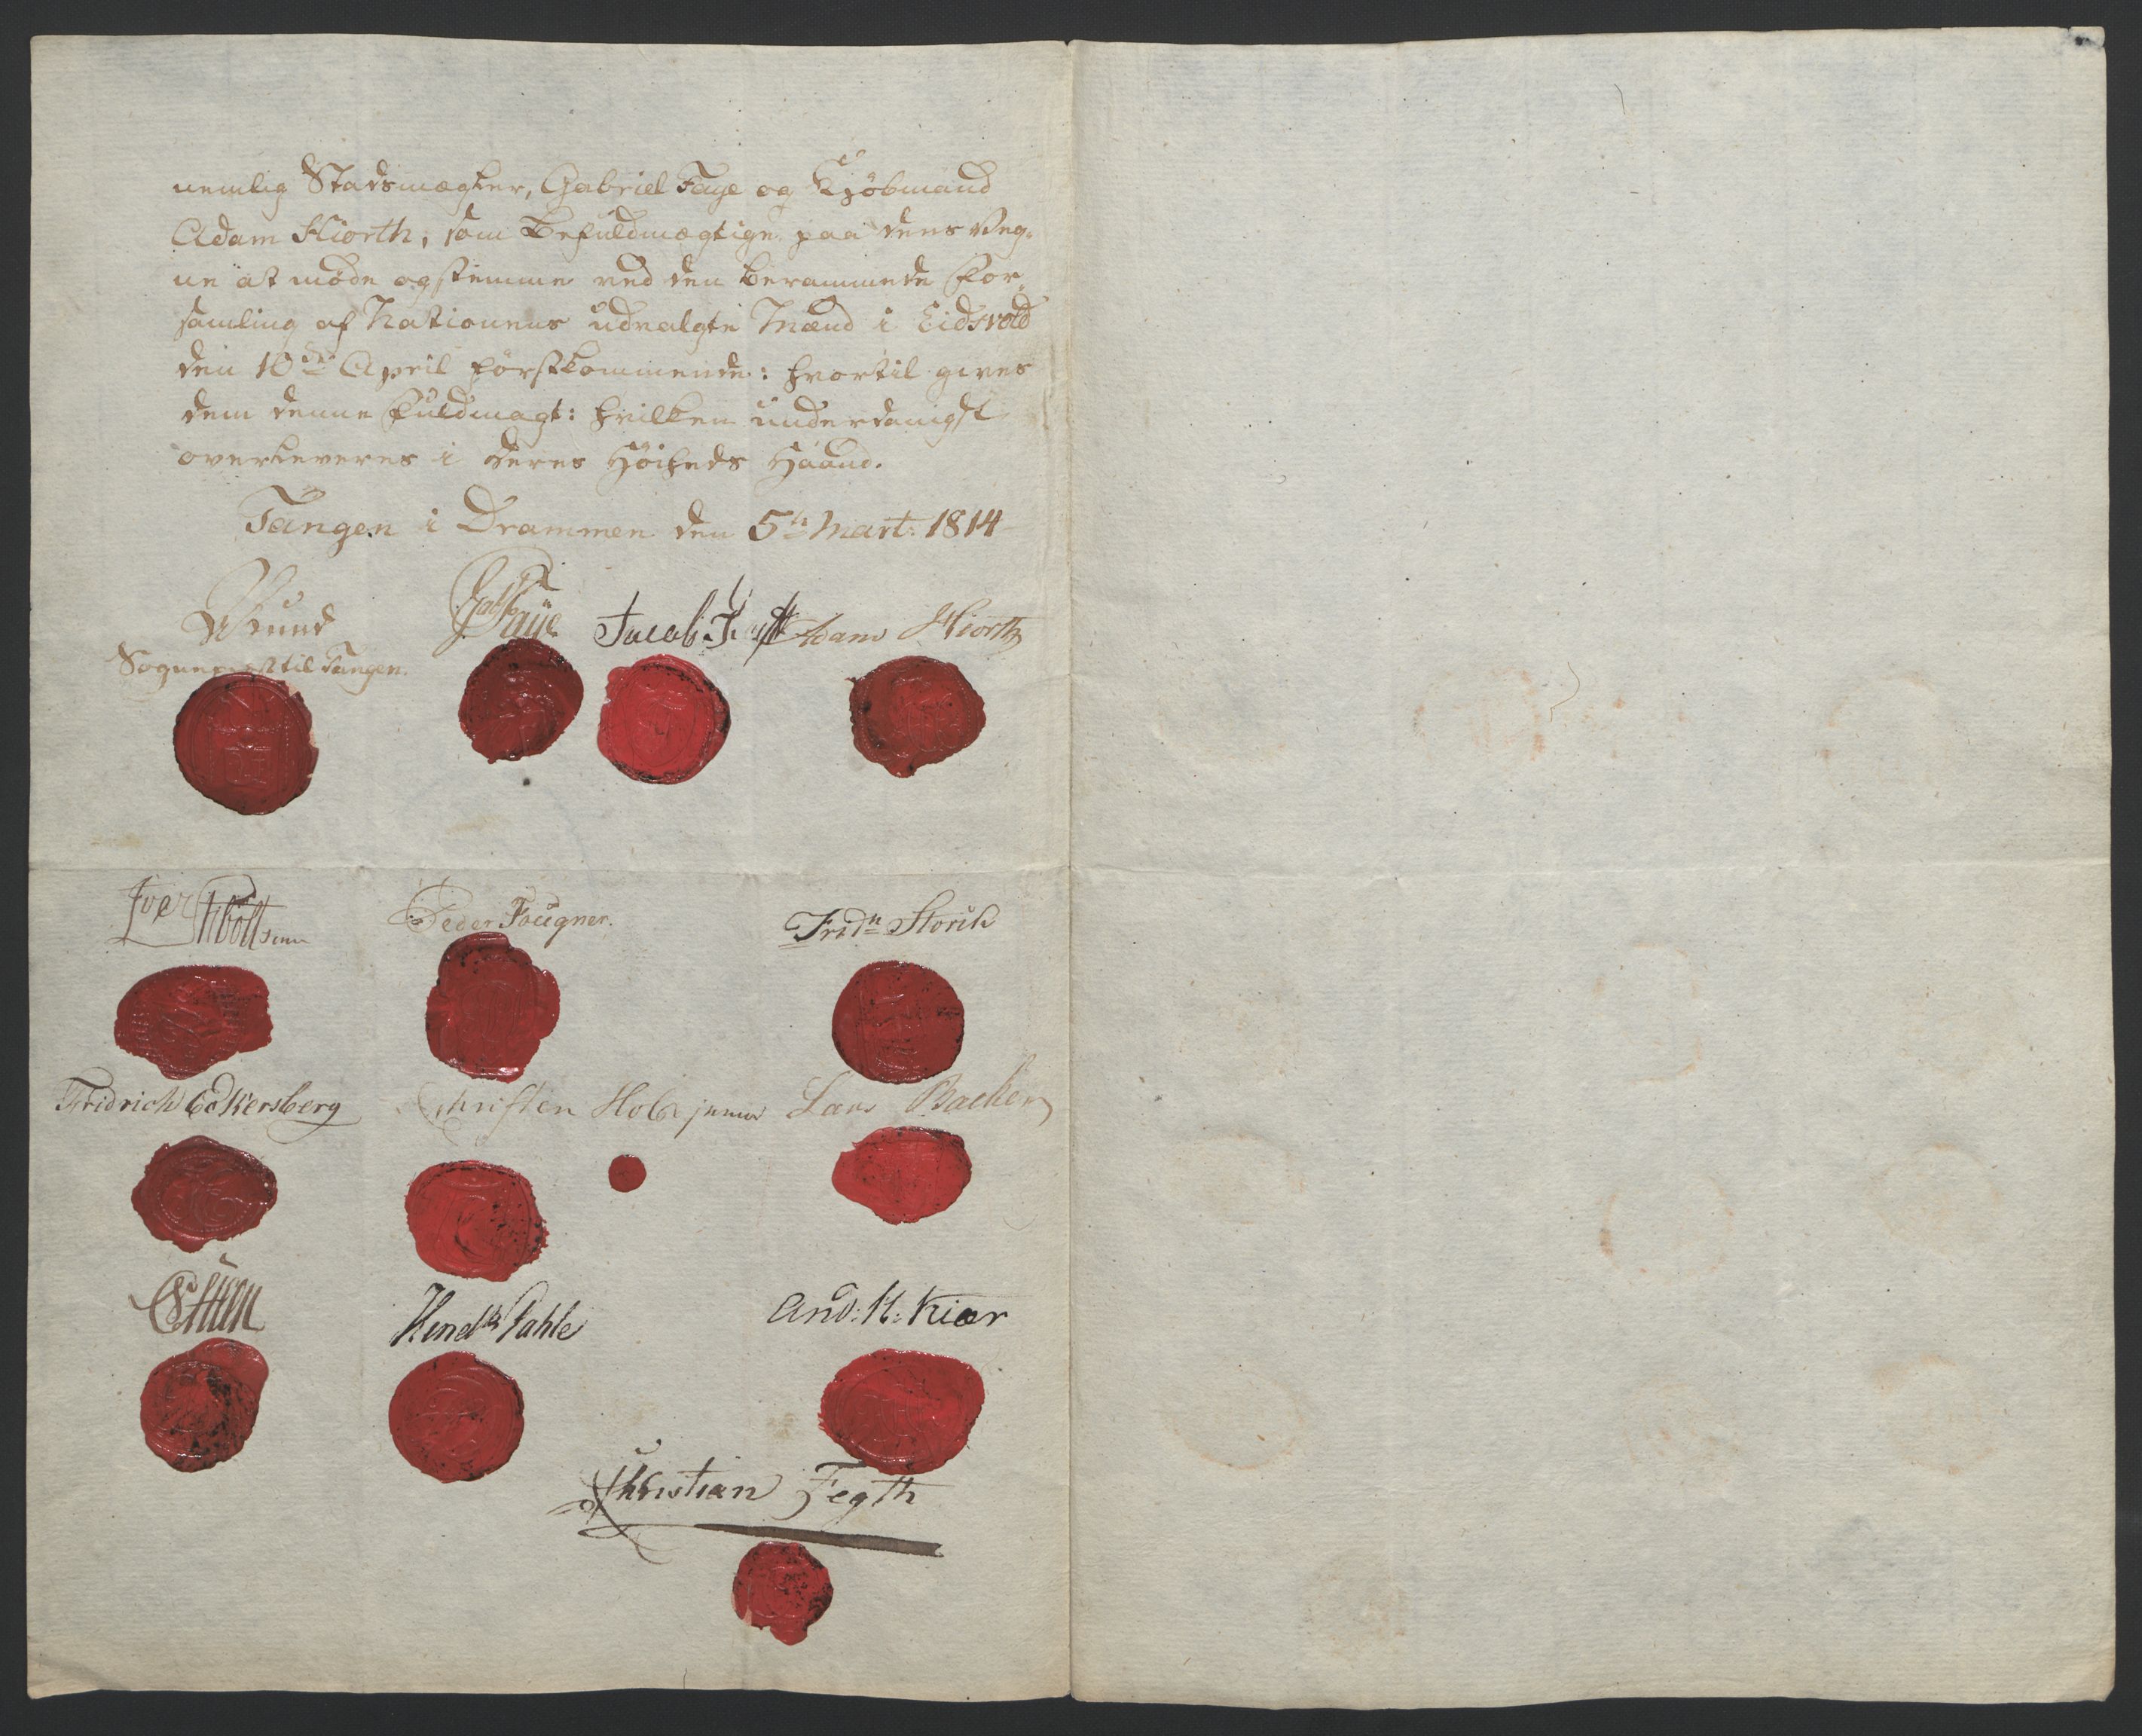 nemlig Stadsmægler, Gabriel Faye og Kjöbmand
Adam Hiorth, som Befuldmægtige paa dens Veg-
ne at møde og stemme ved den berammede For-
samling af Nationens udvalgte Mænd i Eidsvold
den 10de April førstkommende: hvortil gives
dem denne Fuldmagt: hvilken underdanigst
overleveres i Deres Høiheds Haand.
Tangen i Drammen den 5te Mart: 1814
Sogneprest til Tangen.
Gab Faÿe Jacob Adam Hiorth
Iver Peder Fougner. Fridr Storch
Fridrich Eckersberg Christen Holst junior Lars Backer
Hendk Pahle And: H: Kiær
Christian Fegth